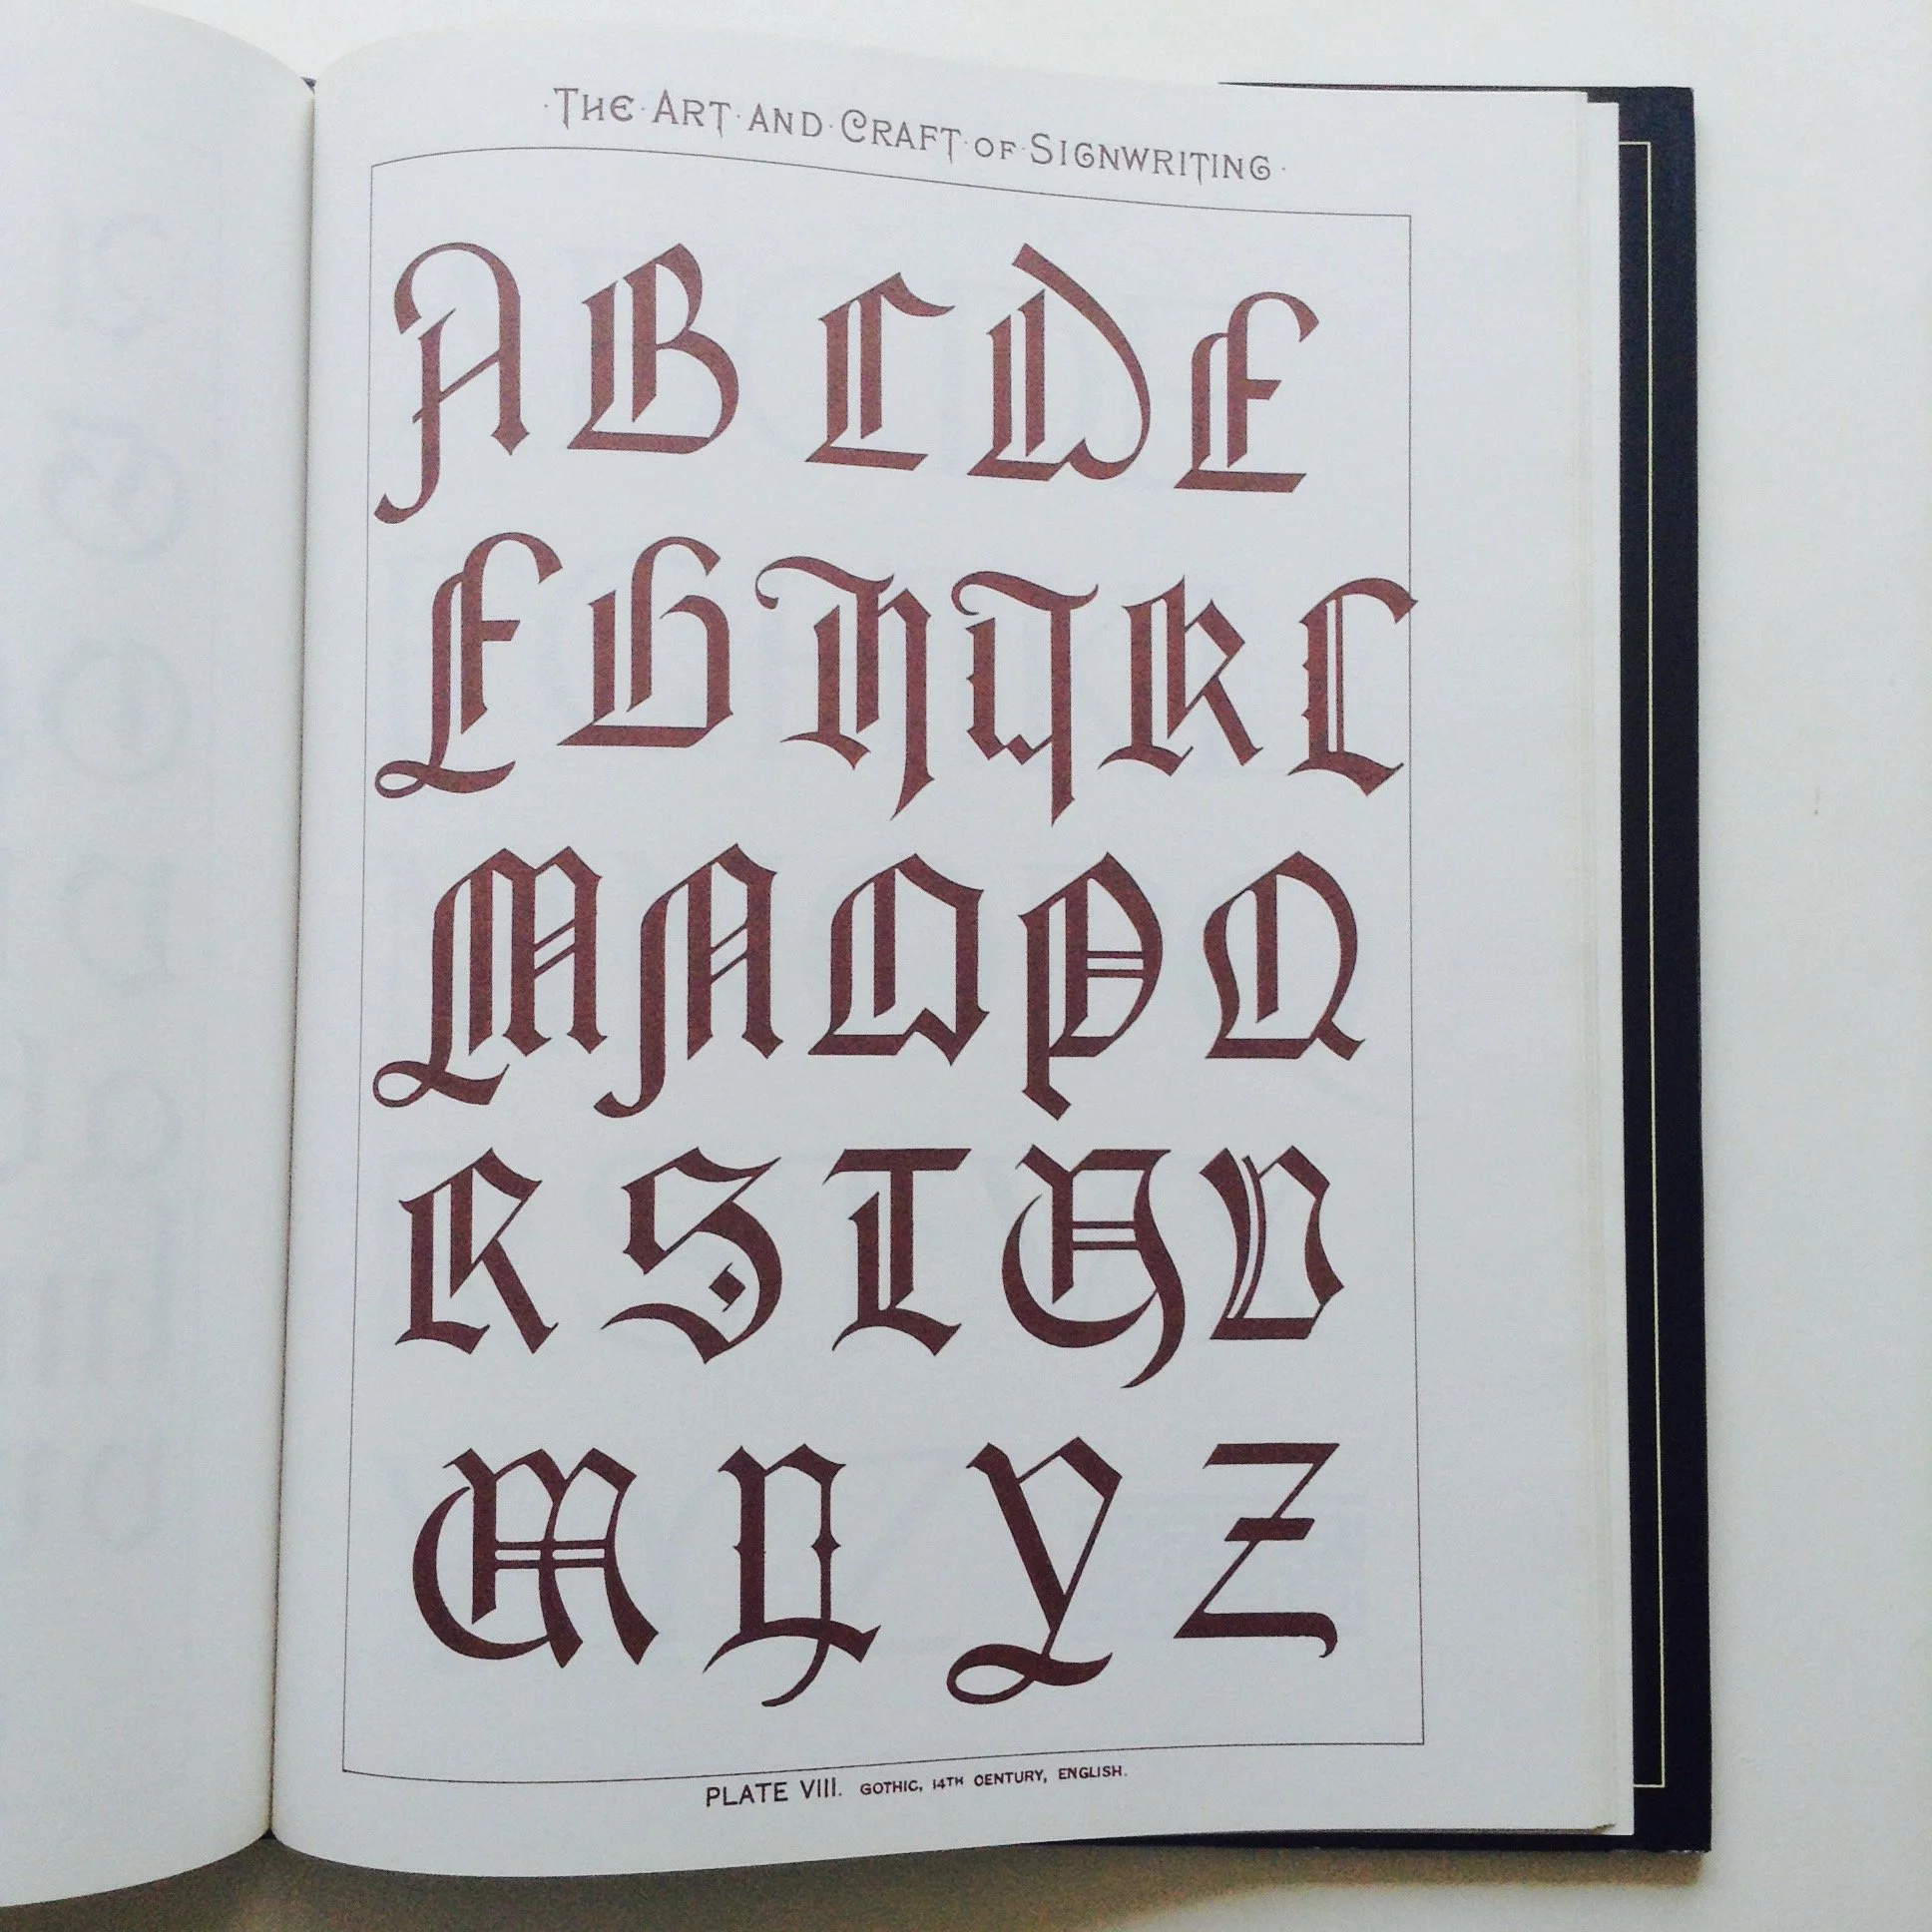 ·THE·ART·AND·CRAFT·OF·SIGNWRITING·
A B C D E
F G H I K L
M N O P Q
R S T U V
W X Y Z
PLATE VIII. GOTHIC, 14TH CENTURY, ENGLISH.